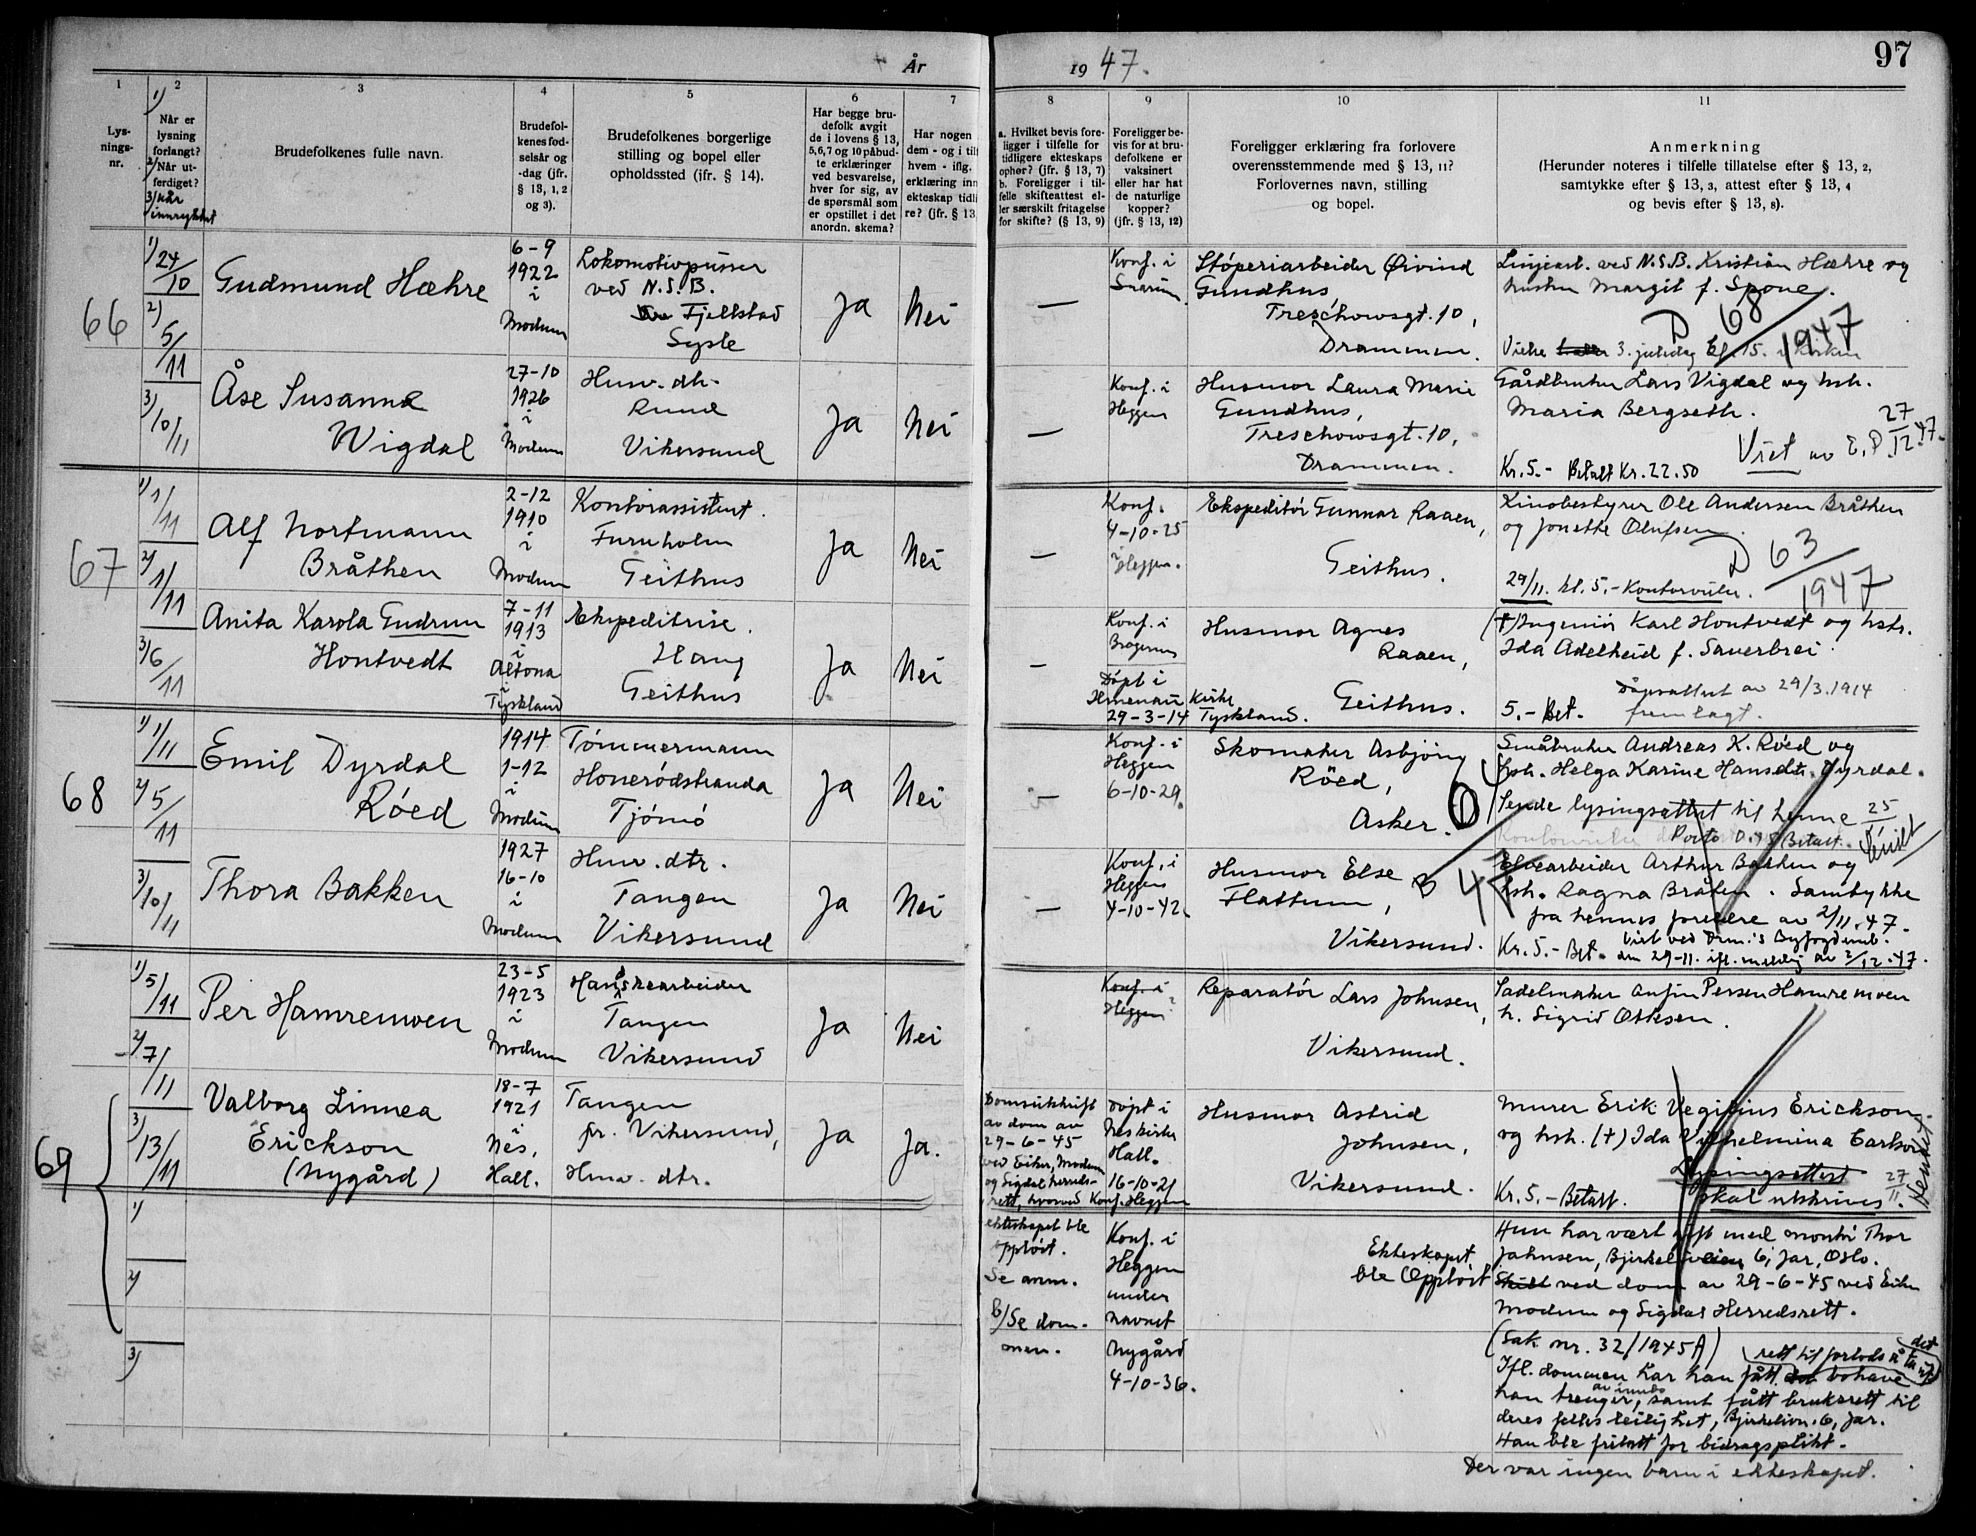 År
19 47.
97
1
2
3
4
5
6
7
8
9
10
11
Lys-
nings-
nr.
1)
Når er
lysning
forlangt?
2) Når ut-
ferdiget?
3) Når
innrykket
Brudefolkenes fulle navn.
Brudefol-
kenes fød-
selsår og
-dag (jfr.
§ 13, 1, 2
og 3).
Brudefolkenes borgerlige
stilling og bopel eller
opholdssted (jfr. § 14).
Har begge bru-
defolk avgit
de i lovens § 13,
5,6,7 og 10 påbud-
te erklæringer
ved besvarelse,
hver for sig, av
de spørsmål som
er opstillet i det
anordn. skema?
Har nogen
dem - og i tilf
hvem - iflg.
erklæring inn
ekteskap tidli
re? (jfr. § 13,
a. Hvilket bevis fore-
ligger i tilfelle for
tidligere ekteskaps
ophør? (jfr. § 13, 7)
b. Foreligger i til-
felle skifteattest el-
ler særskilt fritagelse
for skifte? (§ 13, 9)
Foreligger be-
vis for at bru-
defolkene er
vaksinert
eller har hat
de naturlige
kopper?
(jfr. § 13, 12)
Foreligger erklæring fra forlovere
overensstemmende med § 13, 11?
Forlovernes navn, stilling
og bopel.
Anmerkning
(Herunder noteres i tilfelle tillatelse efter § 13, 2,
samtykke efter § 13, 3, attest efter § 13, 4
og bevis efter § 13, 8).
66
1) 24/10
2) 5/11
3) 10/11
Gudmund Hæhre
6-9
1922
i
Modum
Lokomotivpusser
ved N.S.B.
Fjellstad
Sysle
Ja
Nei
—
Konf. i
Snarum
Støperiarbeider Øivind
Gundhus,
Treschowsgt. 10,
Drammen.
Linjearb. ved N.S.B. Kristian Hæhre og
hustru Margit f. Spone.
D 68/1947
Vielse 3. juledag kl. 15. i kirken
Åse Susanne
Wigdal
27-10
1926
i
Modum
Husv. dtr.
Rund
Vikersund
Ja
Nei
—
Konf. i
Heggen
Husmor Laura Marie
Gundhus,
Treschowsgt. 10,
Drammen.
Gårdbruker Lars Vigdal og hsh.
Maria Bergseth.
Viet av E.P. 27/12.47.
Kr. 5.- Betalt Kr. 22.50
67
1) 1/11
2) 1/11
3) 6/11
Alf Nortmann
Bråthen
2-12
1910
i
Modum
Kontorassistent.
Furuholm
Geithus
Ja
Nei
—
Konf.
4-10-25
i Heggen.
Ekspeditør Gunnar Raaen,
Geithus.
Kinobestyrer Ole Andersen Bråthen
og Jonette Olufsen.
D 63/1947
29/11. kl. 5.- Kontorvielse.
Anita Karola Gudrun
Hontvedt
7-11
1913
i
Altona
i
Tyskland
Ekspeditrise.
Haug
Geithus
Ja
Nei
—
Konf. i
Bragernes
Døpt i
Ilmenau Kirke
29-3-14 Tyskland.
Husmor Agnes
Raaen,
Geithus.
(†) Ingeniør Karl Hontvedt og hstr.
Ida Adelheid f. Sauerbrei.
Dåpsattest av 29/3.1914
fremlagt.
5.- Bet.
68
1) 1/11
2) 5/11
3) 10/11
Emil Dyrdal
Røed
1914
1-12
i
Modum
Tømmermann
Honerødstranda
Tjømø
Ja
Nei
—
Konf. i
Heggen
6-10-29.
Skomaker Asbjørn
Røed,
Asker.
Småbruker Andreas K. Røed og
hsh. Helga Karine Hansdtr. Dyrdal.
Sende lysingsattest til henne 25/
Porto 0.45 Betalt. Sendt
Thora Bakken
1927
16-10
i
Modum
Husv. dtr.
Tangen
Vikersund
Ja
Nei
—
Konf. i
Heggen
4-10-42.
Husmor Else
Flattum,
Vikersund.
B 47
Elvearbeider Arthur Bakken og
hsh. Ragna Bråten. Samtykke
fra hennes foreldre av 2/11.47.
Kr. 5.- Bet. Viet ved Drm.'s Byfogdemb.
den 29-11. ifl. meldig av 2/12.47.
69
1) 5/11
2) 7/11
3) 13/11
Per Hamremoen
23-5
1923
i
Modum
Hanskearbeider
Tangen
Vikersund
Ja
Nei
Konf. i
Heggen
Reparatør Lars Johnsen,
Vikersund.
Sadelmaker Anfin Persen Hamremoen
h. Sigrid Ottesen.
Valborg Linnea
Erickson
(Nygård)
18-7
1921
i
Nes,
Hall.
Tangen
pr. Vikersund,
Husv. dtr.
Ja
Ja.
Domsutskrift
av dom av
29-6-45
ved Eiker, Modum
og Sigdal herreds-
rett, hvorved
ekteskapet ble
oppløst.
Se anm.
b/ Se dom-
men.
Døpt i
Nes kirke
Hall.
16-10-21
Konf. Heggen
Konf. i
Heggen
under
navnet
Nygård
4-10-36.
Husmor Astrid
Johnsen,
Vikersund.
Ekteskapet
ble Oppløst
Murer Erik Vegilius Erickson
og hsh. (†) Ida Vilhelmina Carlson
Lysingsattest
skal utskrives. 27/11
Kr. 5.- Betalt.
Hendet
Hun har vært gift med montør Thor
Johnsen, Bjerkelivien 6, Jar, Oslo.
Skilt ved dom av 29-6-45 ved Eiker
Modum og Sigdal Herredsrett.
(Sak nr. 32/1945A)
rett til forlods å ta ut det
Ifl. dommen har han fått bohave
han trenger, av innbo samt fått bruksrett til
deres felles leilighet, Bjerkelivn. 6, Jar.
Han ble fritatt for bidragsplikt.
Der var ingen barn i ekteskapet.
1)
2)
3)